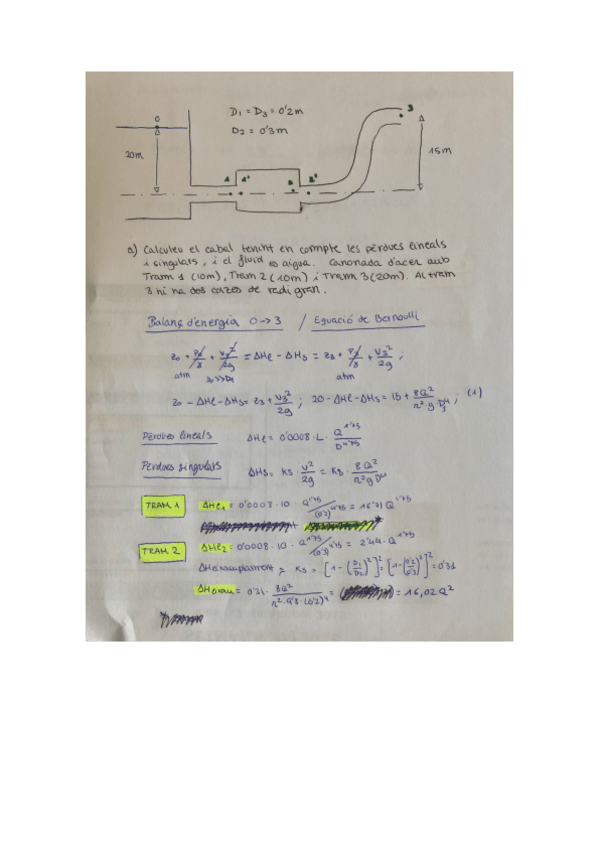 D1 = D3 = 0'2m
D2 = 0'3m
0
3
20m
15m
1 1' 2 2'
a) Calculeu el cabal tenint en compte les pèrdues lineals
i singulars, i el fluid és aigua. Canonada d'acer amb
Tram 1 (10m), Tram 2 (10m) i Tram 3 (20m). Al tram
3 hi ha dos colzes de radi gran.
Balanç d'energia 0→3 / Equació de Bernoulli
z0 + P0/γ + V0²/2g - ΔHl - ΔHs = z3 + P3/γ + V3²/2g ;
atm atm
z0 - ΔHl - ΔHs = z3 + V3²/2g ; 20 - ΔHl - ΔHs = 15 + 8Q²/π²·g·D3⁴ ; (1)
Pèrdues lineals ΔHl = 0'0008 · L · Q^1'75/D^4'75
Pèrdues singulars ΔHs = Ks · V²/2g = Ks · 8Q²/π²gD⁴
TRAM 1 ΔHl1 = 0'0008 · 10 · Q^1'75/(0'2)^4'75 = 16'71 Q^1'75
TRAM 2 ΔHl2 = 0'0008 · 10 · Q^1'75/(0'3)^4'75 = 2'44 · Q^1'75
Ks = [1 - (D1/D2)²]² = [1 - (0'2/0'3)²]² = 0'31
= 0'31 · 8Q²/π²·9'8·(0'2)⁴ = = 16,02 Q²